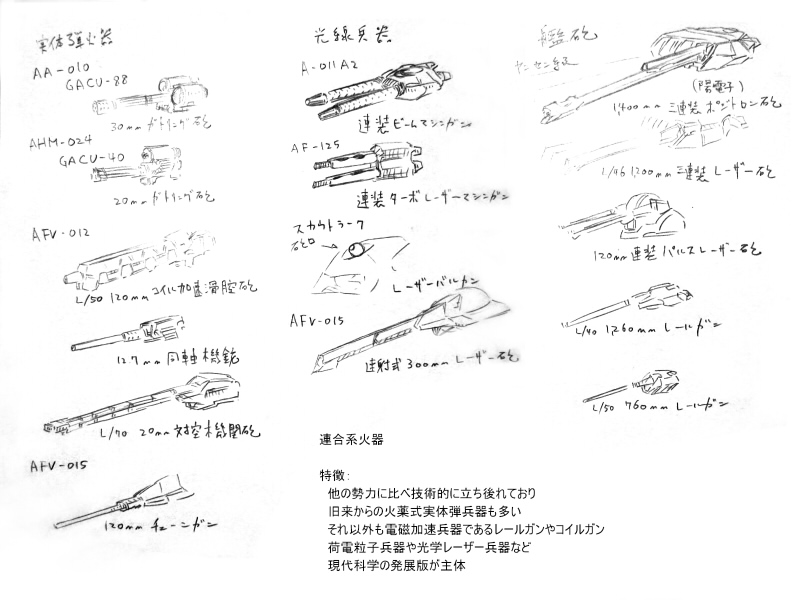 実体弾火器
AA-010
GACU-88
30mm ガトリング砲
AHM-024
GACU-40
20mm ガトリング砲
AFV-012
L/50 120mm コイル加速滑腔砲
12.7mm 同軸機銃
L/70 20mm 対空機関砲
AFV-015
120mm チェーンガン
光線兵器
A-011A2
連装ビームマシンガン
AF-125
連装ターボレーザーマシンガン
スカウトラーク
砲口
レーザーバルカン
AFV-015
連射式300mm レーザー砲
艦砲
(陽電子)
1,400mm 三連装 ポジトロン砲
L/46 1200mm 三連装 レーザー砲
120mm 連装 パルスレーザー砲
L/40 1260mm レールガン
L/50 760mm レールガン
連合系火器
特徴:
他の勢力に比べ技術的に立ち後れており
旧来からの火薬式実体弾兵器も多い
それ以外も電磁加速兵器であるレールガンやコイルガン
荷電粒子兵器や光学レーザー兵器など
現代科学の発展版が主体